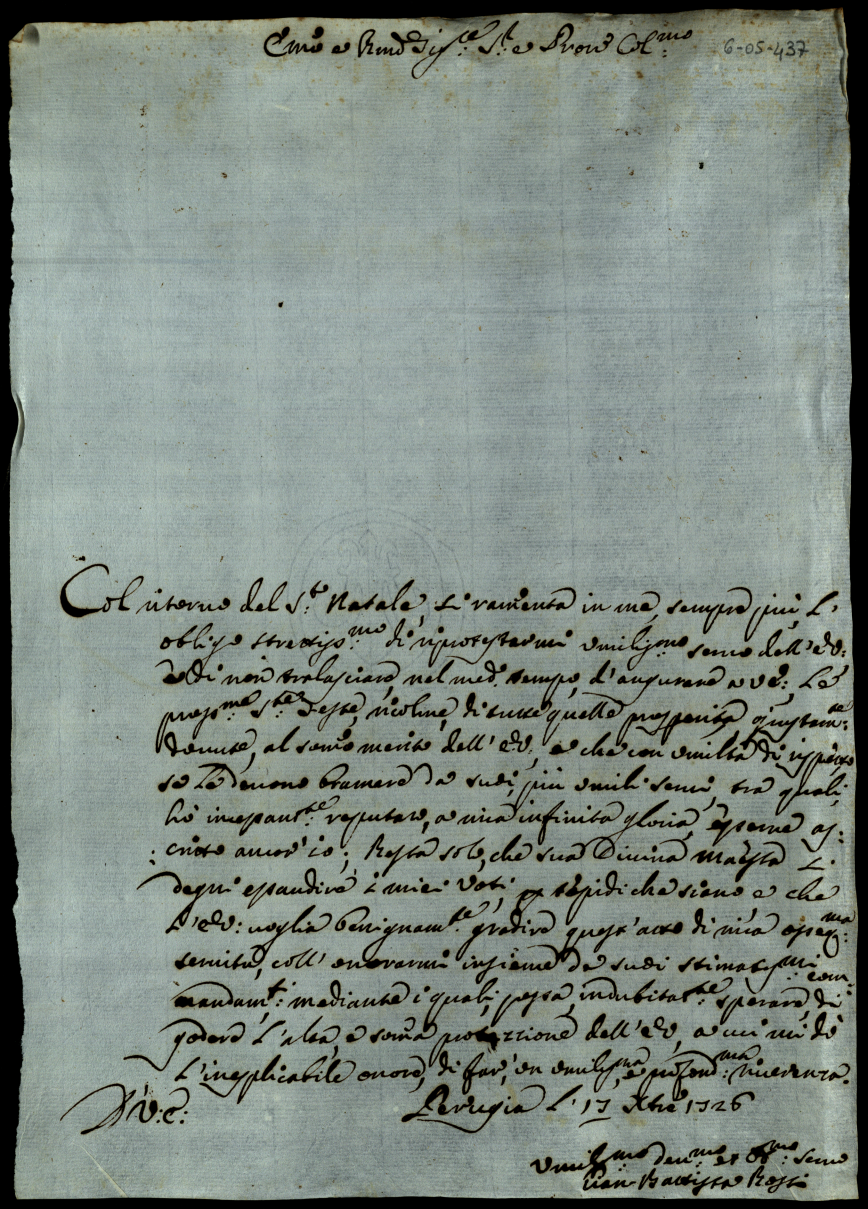 Emo e Rmo Sig:re S.r e Prone Col:mo
6-05-437
Col ritorno del S.to Natale, si ramenta in me, sempre più, l'
obligo strettiss:mo di riprotestarmi umiliss:mo servo dell' E.V:
e di non tralasciare, nel med.o tempo, d'augurare a V.E:, Le
pross:me S.te Feste, ricolme, di tutte quelle prosperità, giustam:te
dovute, al sommo merito dell' E.V., e che con umiltà di rispetto
se Le devono bramare da suoi più umili servi, tra quali,
hò incessant:te reputato, a mia infinita gloria, essere as:
:critto ancor' io; Resta solo, che Sua Divina Maestà si
degni esaudire i miei voti, tepidi che siano e che
L'E.V: voglia benignam:te gradire quest' atto di mia osseq:ma
servitù, coll' onorarmi insieme de suoi stimatiss:mi com:
mandam.ti: mediante i quali, possa, indubitat:te sperare, di
godere l'alta, e somma protezzione dell' E.V., a cui mi dò
L'inesplicabile onore, di far', un umiliss:ma, e profond:ma riverenza.
D.V.E:
Perugia l' 17 Xbre 1726
Umiliss:mo Dev:mo et Obb:mo Servo
Gian Battista Rossi